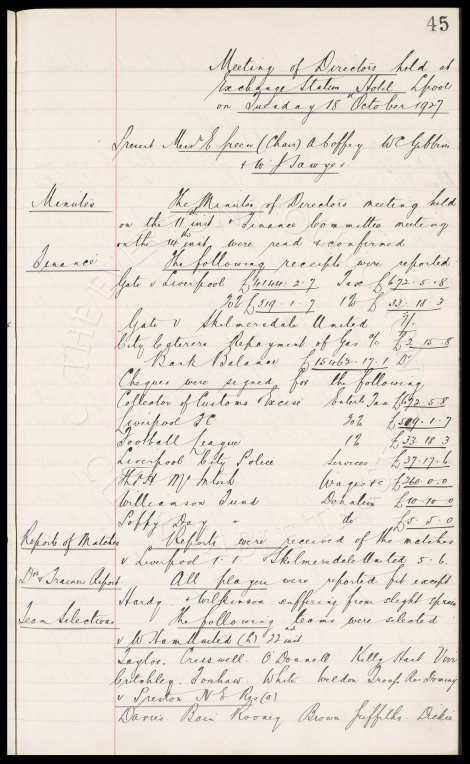 45
Meeting of Directors held at
Exchange Station Hotel Lpool
on Tuesday 18th October 1927
Present Messrs E Green (Chair) A Coffey W C Gibbins
& W J Sawyer
Minutes The Minutes of Directors meeting held
on the 11th inst & Finance Committee meeting
on the 14th inst were read & confirmed
Finance The following receipts were reported
Gate v Liverpool £4144. 2. 7 Tax £672. 5. 8
20% £519. 1. 7 1% £33. 18. 3
Gate v Skelmersdale United 7/-
City Caterers Repayment of Gas a/c £2 15. 8
Bank Balance £15462. 17. 1 Dr
Cheques were signed for the following
Collector of Customs & Excise Entert Tax £672. 5. 8
Liverpool FC 20% £519. 1. 7
Football League 1% £33. 18. 3
Liverpool City Police Services £37. 17. 6
Thos H McIntosh Wages &c £260. 0. 0
Williamson Fund Donation £10. 10. 0
Poppy Day " do £5. 5. 0
Reports of Matches Reports were received of the matches
v Liverpool 1. 1. & Skelmersdale United 5. 6.
Drs & Trainers Report All players were reported fit except
Hardy & Wilkinson suffering from slight sprains
Team Selections The following teams were selected
v W Ham United (h) 22nd inst
Taylor. Cresswell. O'Donnell Kelly Hart Virr
Critchley. Forshaw. White Weldon Troup Res Dominy
v Preston N E Res (a)
Davies. Bain Rooney Brown Griffiths. Dickie